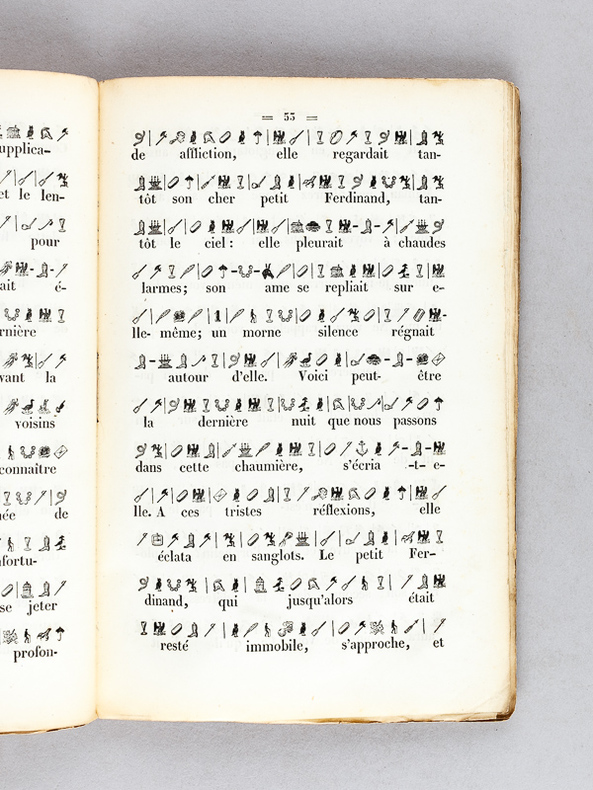 upplica-
et le len-
pour
ait é-
rnière
vant la
voisins
connaitre
née de
nfortu-
se jeter
profon-
= 55 =
de affliction, elle regardait tan-
tôt son cher petit Ferdinand, tan-
tôt le ciel : elle pleurait à chaudes
larmes; son ame se repliait sur e-
lle- même; un morne silence régnait
autour d'elle. Voici peut- être
la dernière nuit que nous passons
dans cette chaumière, s'écria -t- e-
lle. A ces tristes réflexions, elle
éclata en sanglots. Le petit Fer-
dinand, qui jusqu'alors était
resté immobile, s'approche, et